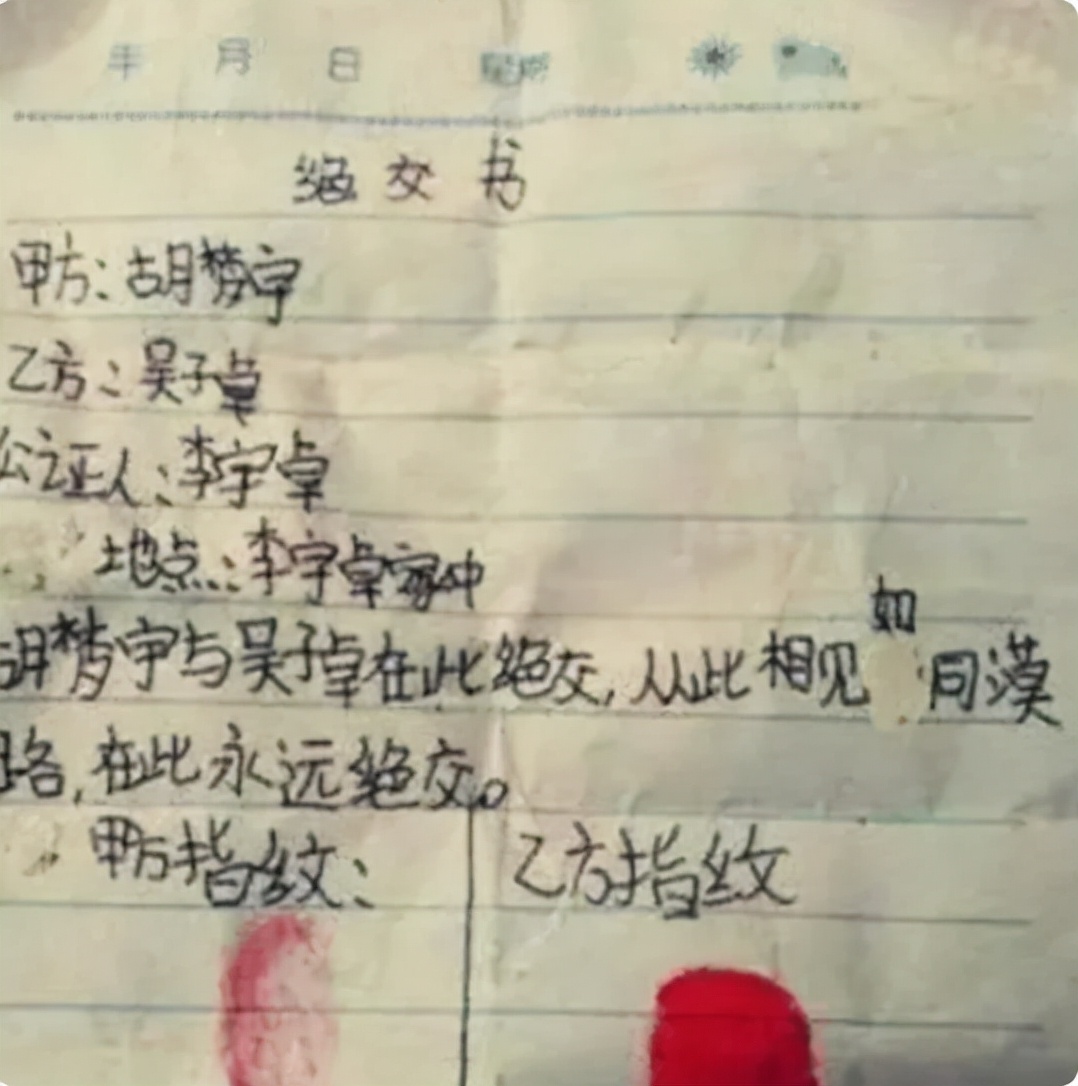 年 月 日 星期
绝交书
甲方：胡梦宇
乙方：吴子卓
公证人：李宇卓
地点：李宇卓家中
胡梦宇与吴子卓在此绝交，从此相见如同漠
路，在此永远绝交。
甲方指纹： 乙方指纹